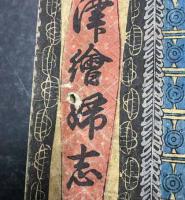 津繪婦志